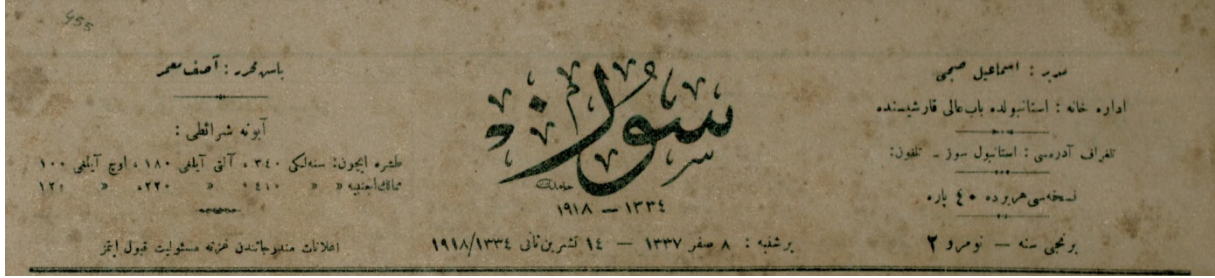 455
مدير : اسماعيل صبحى
اداره خانه : استانبولده باب عالى قارشيسنده
تلغراف آدرسى : استانبول سوز ـ تلفون:
نسخه‌سى هر يرده ٤٠ پاره
برنجى سنه — نومرو ٢
سوز
حامد
١٣٣٤ — ١٩١٨
پنجشنبه : ٨ صفر ١٣٣٧ — ١٤ تشرين ثانى ١٩١٨/١٣٣٤
باش محرر : آصف معمر
آبونه شرائطى :
طشره ايچون: سنه‌لكى ٣٤٠ ، آلتى آيلغى ١٨٠ ، اوچ آيلغى ١٠٠
ممالك اجنبيه « « ٤١٠ « ٢٢٠، « ١٢٠
اعلانات مندرجاتندن غزته مسئوليت قبول ايتمز